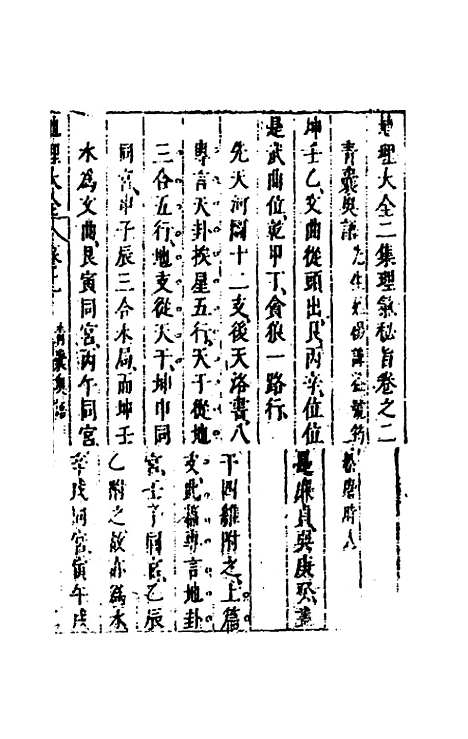 地理大全二集理氣秘旨卷之二
青囊奧語 先生姓楊諱益號筠松唐時人
坤壬乙文曲從頭出艮丙辛位位是廉貞巽庚癸盡
是武曲位乾甲丁貪狼一路行
先天河圖十二支後天洛書八干四維附之上篇
專言天卦挨星五行天干從地支此篇專言地卦
三合五行地支從天干坤申同宮壬子同宮乙辰
同宮申子辰三合水局而坤壬乙附之故亦為水
水為文曲艮寅同宮丙午同宮辛戌同宮寅午戌
地理大全 青囊奧語